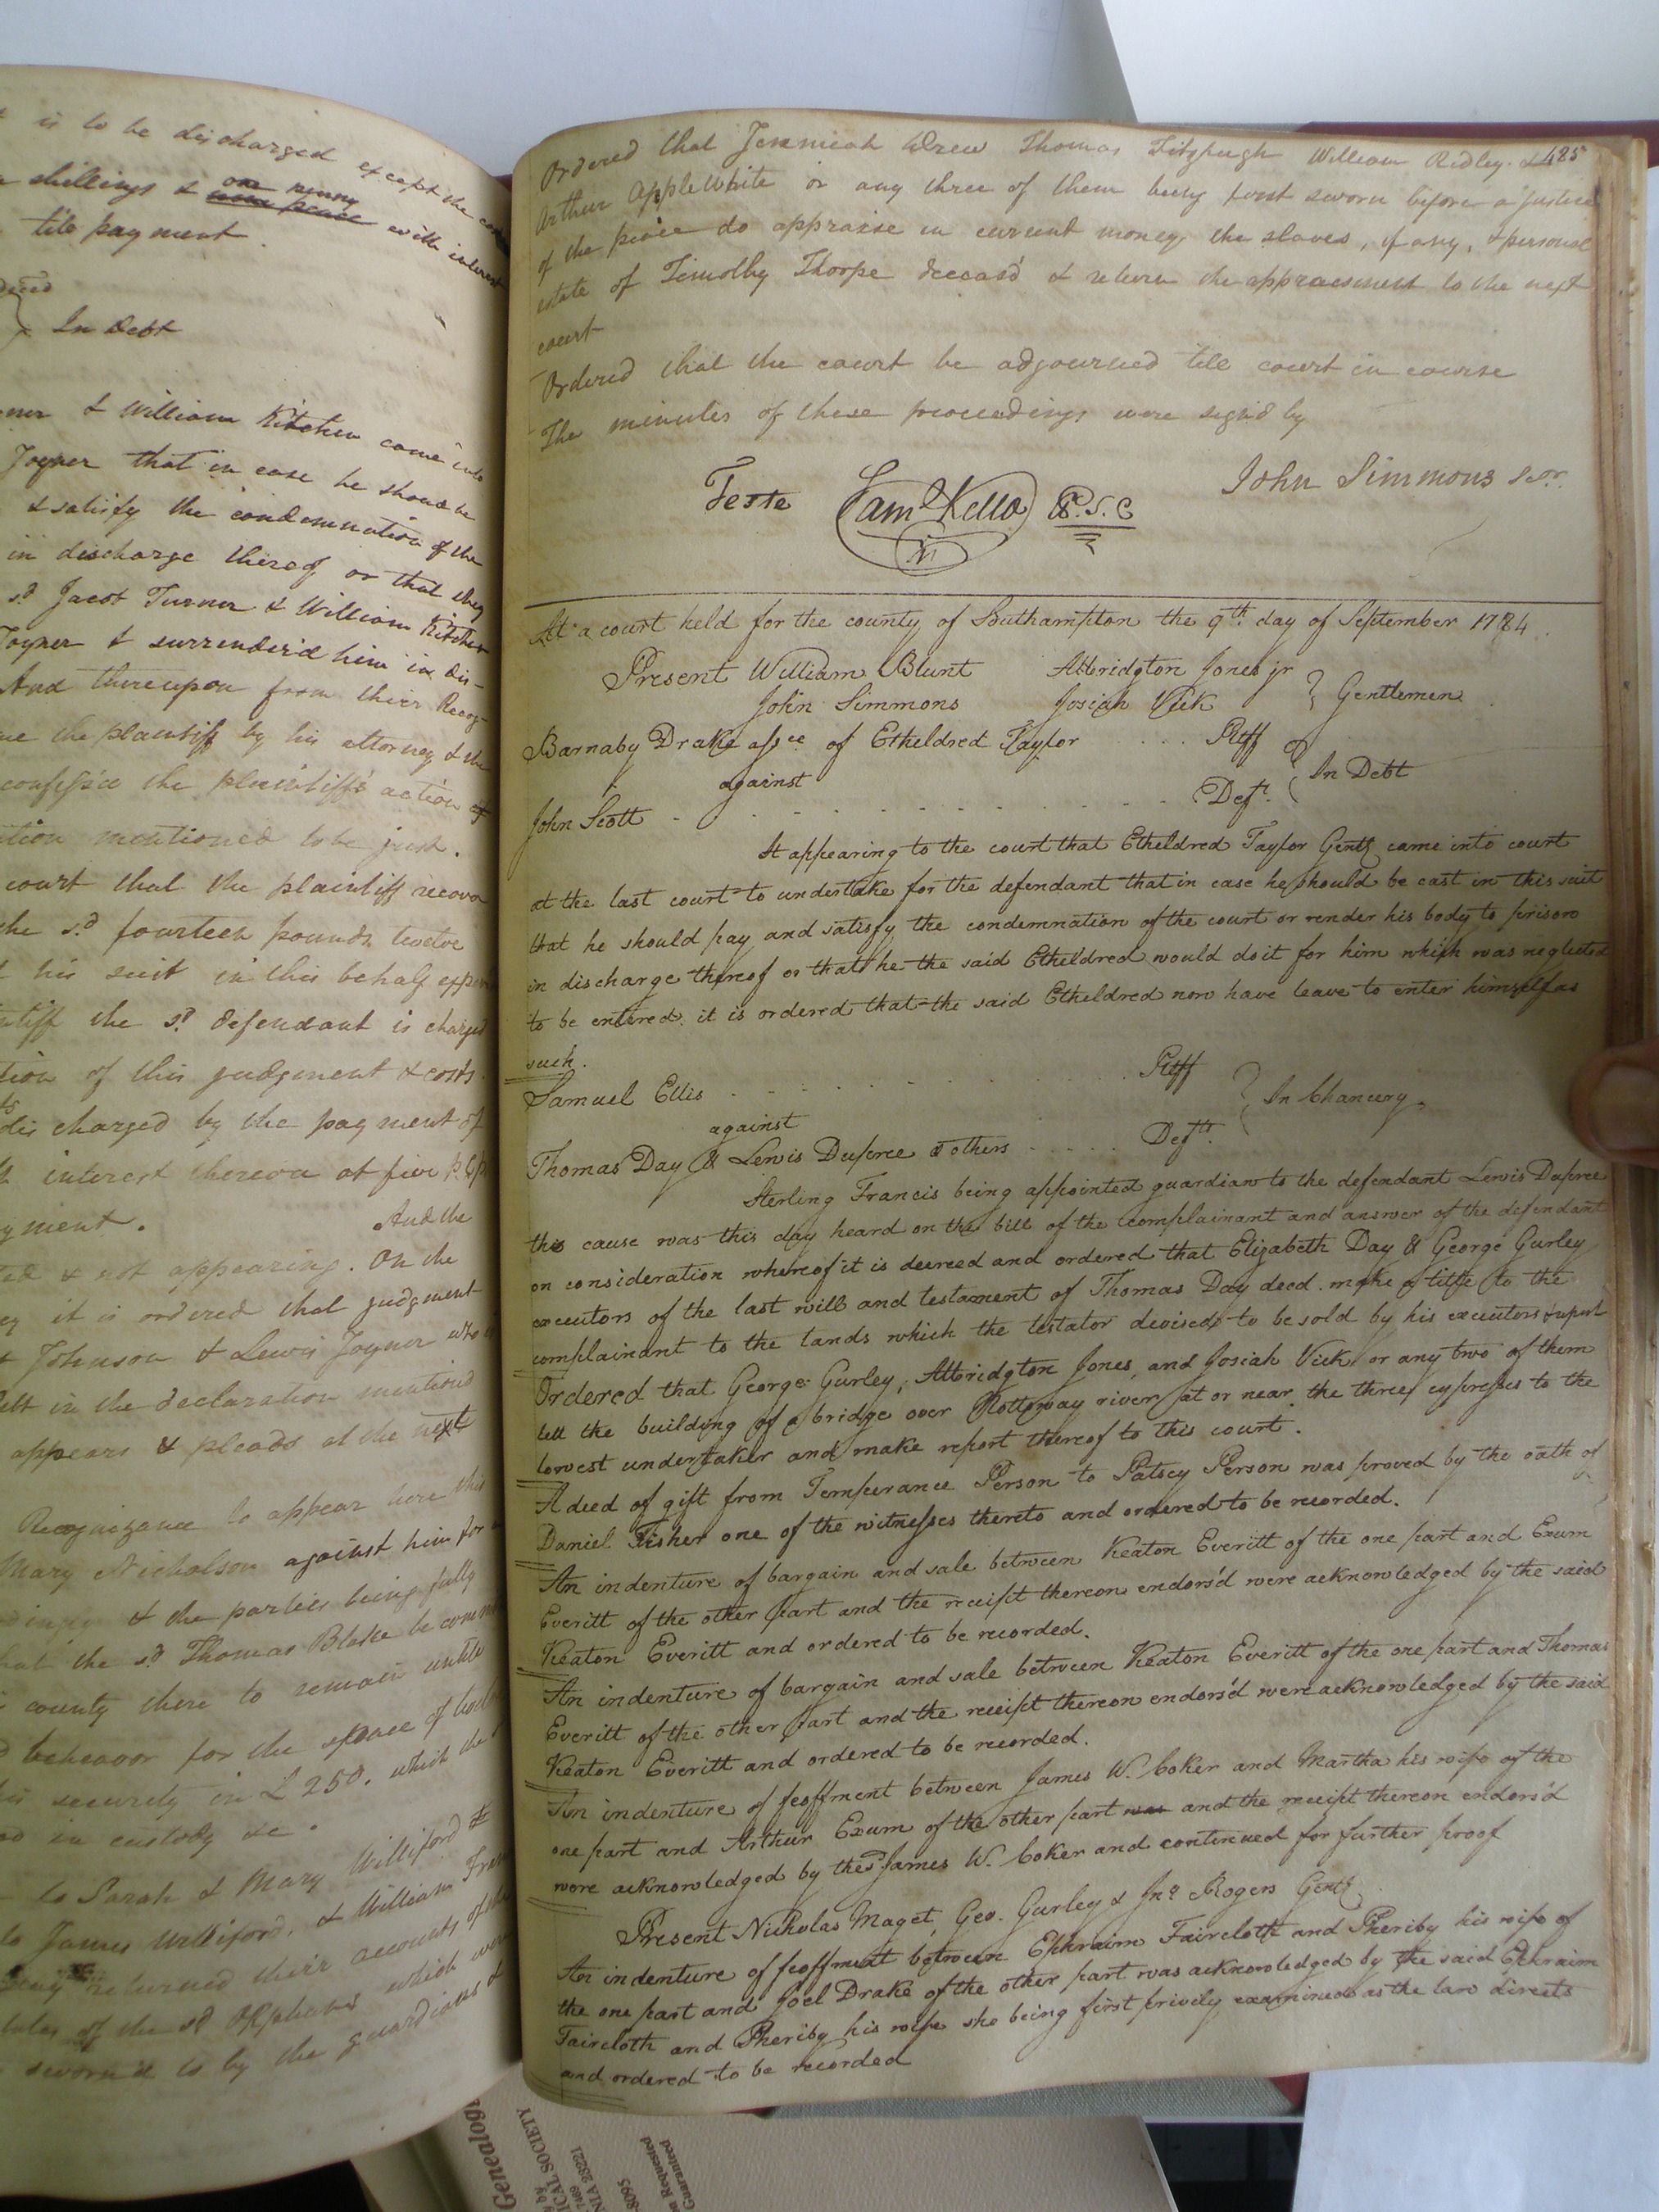 is to be discharged except the
shillings & one penny with interest
till payment.
In Debt
& William Kitchen came into
Joyner that in case he should be
& satisfy the condemnation of the
in discharge thereof or that they
sd Jacob Turner & William Kitchen
Joyner & surrender'd him in dis-
And thereupon from their Recog-
the plantiff by his attorney & the
confess'd the plaintiff's action
mentioned to be just.
court that the plaintiff recover
the sd fourteen pounds twelve
his suit in this behalf
the sd defendant is charged
of this judgment & costs.
discharged by the payment of
interest thereon at five
payment.
And the
& not appearing. On the
it is ordered that judgment
Johnson & Lewis Joyner
in the declaration mentioned
appears & pleads at the next
Recognizance to appear here this
Mary Nicholson against him for
& the parties being fully
that the sd Thomas Blake be
county there to remain untill
behavor for the space of
security in £250. which the
in custody &c.
to Sarah & Mary Williford &
to James Williford. & William
returned their accounts of
of the sd Orphans which were
sworn'd to by the guardians &
485
Ordered that Jeremiah Drew Thomas Fitzhugh William Ridley &
Arthur Applewhite or any three of them being first sworn before a justice
of the peace do appraise in current money the slaves, if any, & personal
estate of Timothy Thorpe deceas'd & return the appraisment to the next
court
Ordered that the court be adjourned till court in course
The minutes of these proceedings were sign'd by
John Simmons Senr.
Teste Saml Kello C.S.C
At a court held for the county of Southampton the 9th. day of September 1784.
Present William Blunt Albridgton Jones jr } Gentlemen
John Simmons Josiah Vick
Barnaby Drake assee of Etheldred Taylor . . . Pltff
against } In Debt
John Scott - - - - - - - - - Deft.
It appearing to the court that Etheldred Taylor Gentl came into court
at the last court to undertake for the defendant that in case he should be cast in this suit
that he should pay and satisfy the condemnation of the court or render his body to prison
in discharge thereof or that he the said Etheldred would do it for him which was neglected
to be entered. it is ordered that the said Etheldred now have leave to enter himself as
such.
Samuel Ellis . . . . . . . . . . Pltff
against } In Chancery.
Thomas Day & Lewis Dupree & others . . . . . Defts.
Sterling Francis being appointed guardian to the defendant Lewis Dupree
this cause was this day heard on the bill of the complainant and answer of the defendant
on consideration whereof it is decreed and ordered that Elizabeth Day & George Gurley
executors of the last will and testament of Thomas Day deced. make a title to the
complainant to the lands which the testator devised to be sold by his executors &
Ordered that George Gurley, Albridgton Jones, and Josiah Vick or any two of them
let the building of a bridge over Nottoway river at or near the three cypresses to the
lowest undertaker and make report thereof to this court.
A deed of gift from Temperance Person to Patsey Person was proved by the oath of
Daniel Fisher one of the witnesses thereto and ordered to be recorded.
An indenture of bargain and sale between Keaton Everitt of the one part and Exum
Everitt of the other part and the receipt thereon endors'd were acknowledged by the said
Keaton Everitt and ordered to be recorded.
An indenture of bargain and sale between Keaton Everitt of the one part and Thomas
Everitt of the other part and the receipt thereon endors'd were acknowledged by the said
Keaton Everitt and ordered to be recorded.
An indenture of feoffment between James W. Coker and Martha his wife of the
one part and Arthur Exum of the other part was and the receipt thereon endors'd
were acknowledged by the sd James W. Coker and continued for further proof
Present Nicholas Maget, Geo. Gurley & Jno Rogers Gentl
An indenture of feoffment between Ephraim Faircloth and Pheriby his wife of
the one part and Joel Drake of the other part was acknowledged by the said Ephraim
Faircloth and Pheriby his wife she being first privily examined as the law directs
and ordered to be recorded
Genealog
CAL SOCIETY
NIA 23221
8095
Requested
Guaranteed